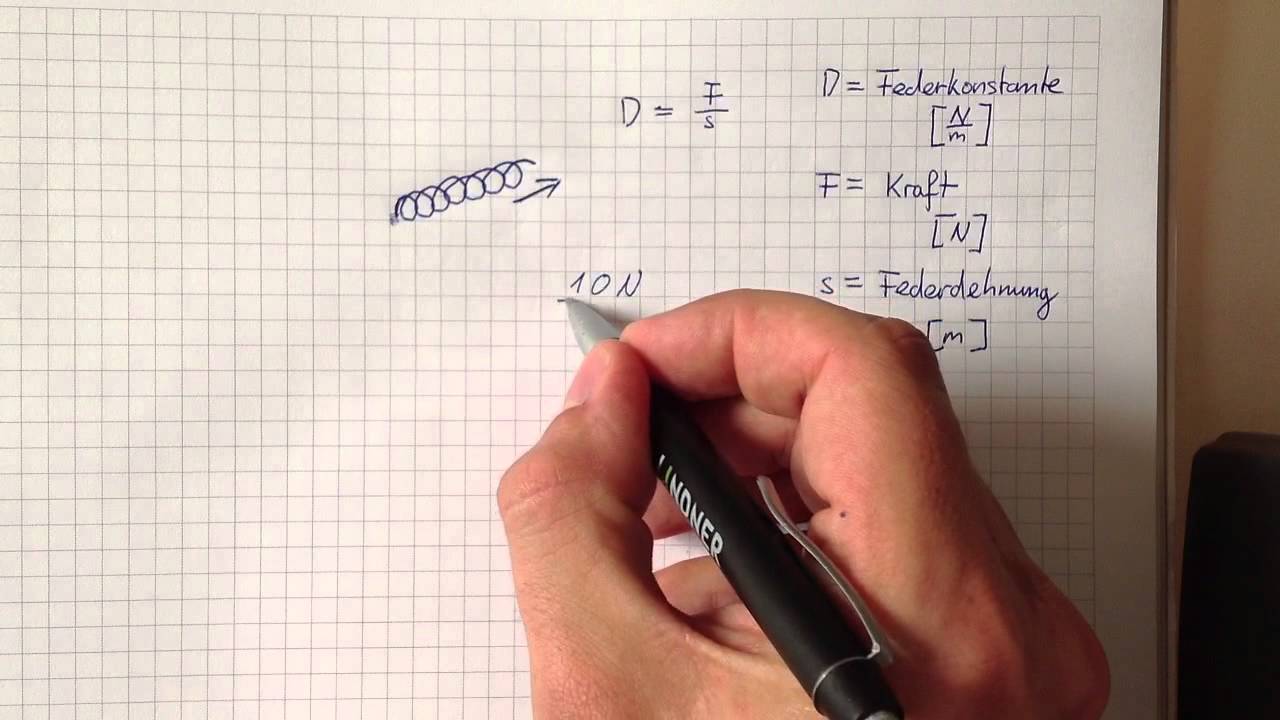 D = F/s
D = Federkonstante
[N/m]
F = Kraft
[N]
10 N
s = Federdehnung
[m]
LINDNER